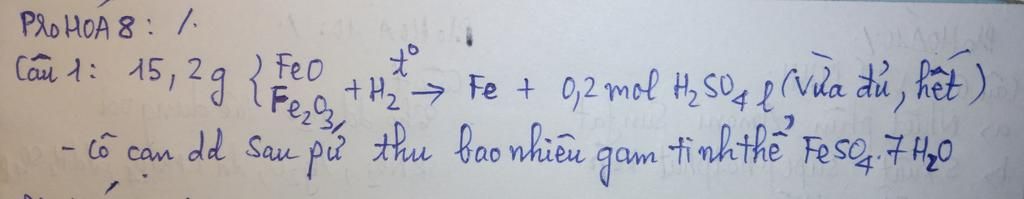 PRO HOÁ 8: /.
Câu 1: 15,2g { FeO Fe2O3 + H2 t° → Fe + 0,2 mol H2SO4 l (vừa đủ, hết)
- Cô cạn dd sau pứ thu bao nhiêu gam tinh thể FeSO4.7H2O